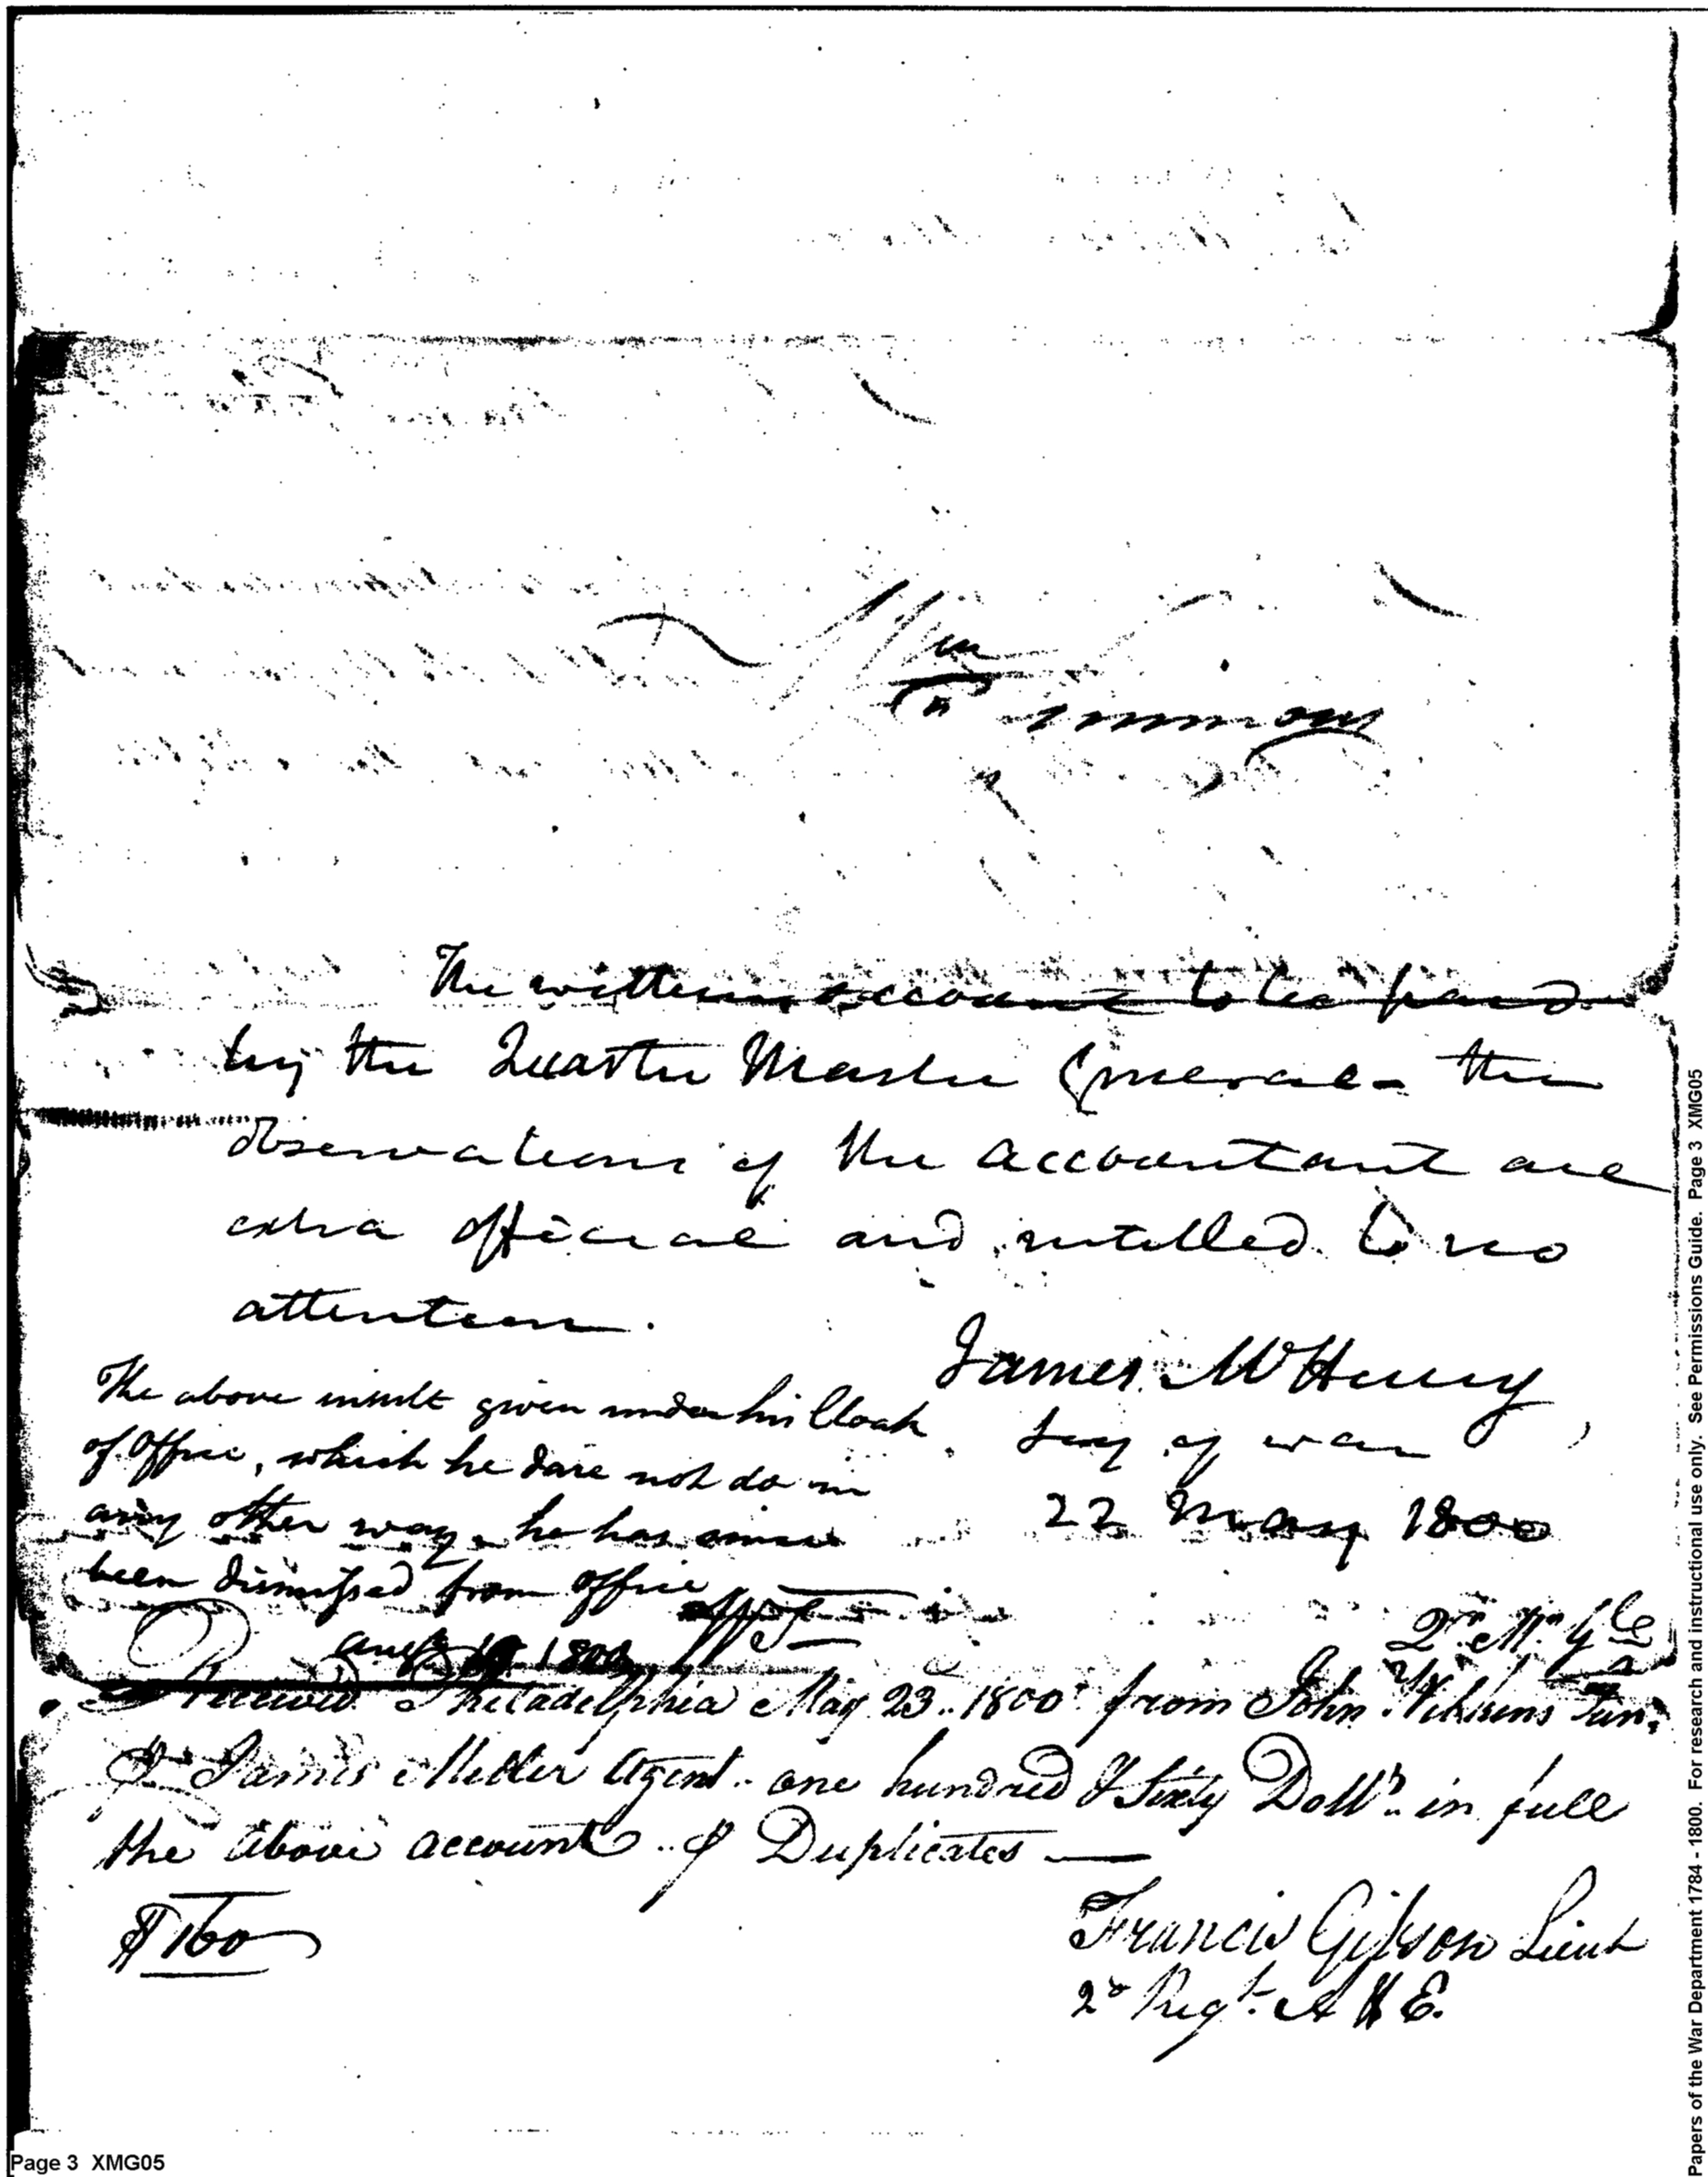 Wm
Simmons
The within account to be paid
by the Quarter Master General - the
observations of the accountant are
extra official and intitled to no
attention.
James McHenry
Secy of war
22 May 1800
The above insult given under his Cloak
of Office, which he dare not do in
any other way, he has since
been dismissed from office
WS
Augt 1800
Qr. Mr. Gle
Received Philadelphia May 23.. 1800 from John Wilkins Jun.
James Miller Agent.. one hundred & Sixty Dolls.. in full
the above account.. Duplicates —
$160
Francis Gibson Lieut
2d Regt. A & E.
Page 3 XMG05
Papers of the War Department 1784 - 1800. For research and instructional use only. See Permissions Guide. Page 3 XMG05